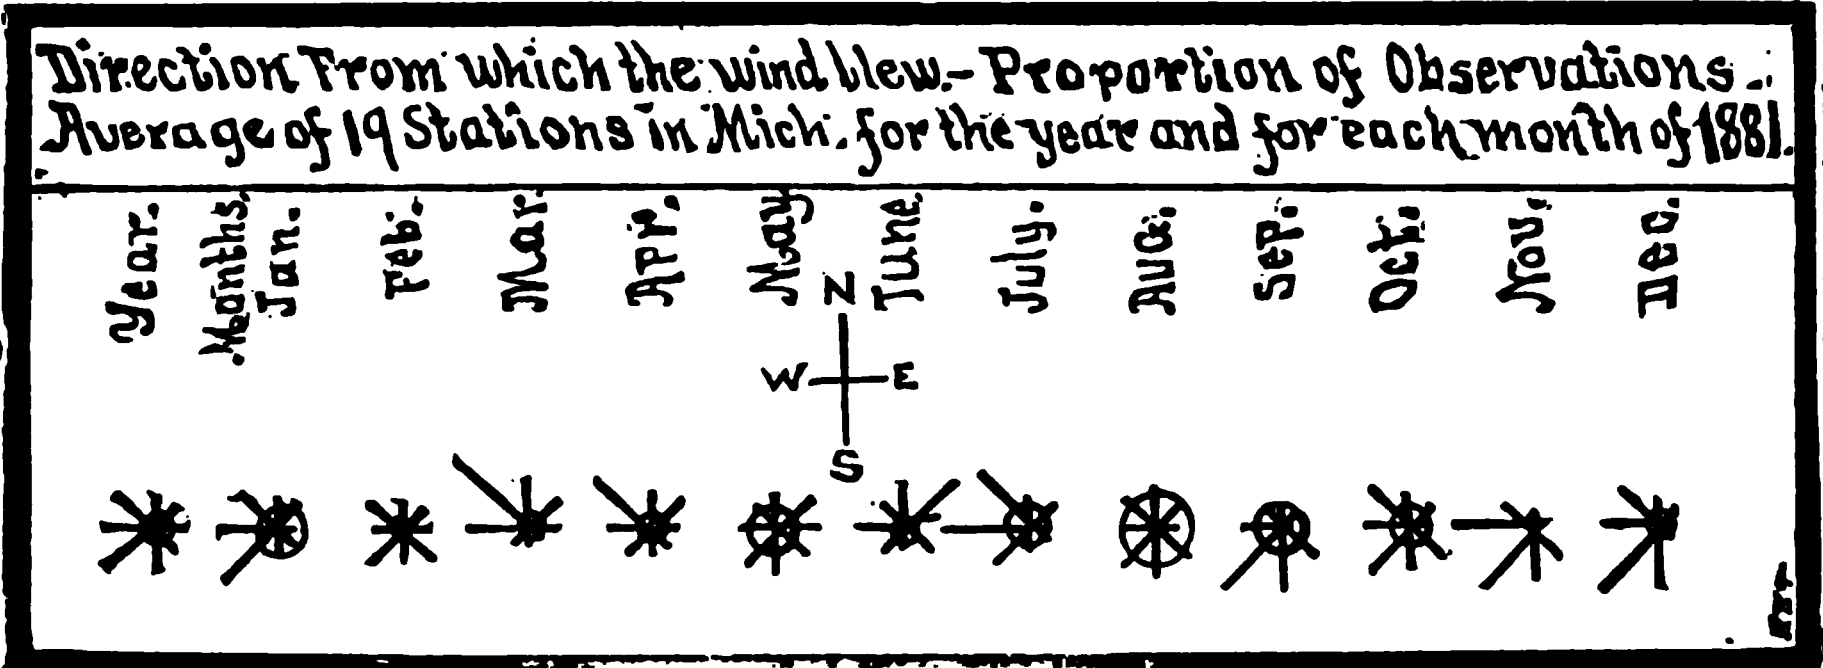 Direction From which the wind blew.- Proportion of Observations.-
Average of 19 Stations in Mich. for the year and for each month of 1881.
Year.
Months.
Jan.
Feb.
Mar.
Apr.
May
June.
July.
Aug.
Sep.
Oct.
Nov.
Dec.
N
W E
S